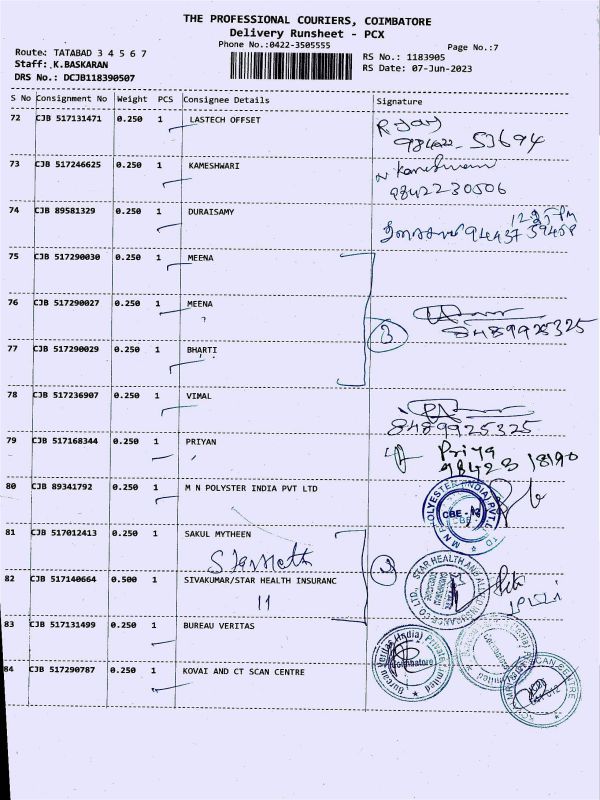 THE PROFESSIONAL COURIERS, COIMBATORE
Delivery Runsheet - PCX
Phone No.:0422-3505555
Page No.:7
Route: TATABAD 3 4 5 6 7
Staff: .K.BASKARAN
DRS No.: DCJB118390507
RS No.: 1183905
RS Date: 07-Jun-2023
S No Consignment No Weight PCS Consignee Details Signature
72 CJB 517131471 0.250 1 LASTECH OFFSET
984022-53694
73 CJB 517246625 0.250 1 KAMESHWARI
N Kameshwari
9842230506
74 CJB 89581329 0.250 1 DURAISAMY
12.25 Pm
94437 59458
75 CJB 517290030 0.250 1 MEENA
76 CJB 517290027 0.250 1 MEENA
3
8489925325
77 CJB 517290029 0.250 1 BHARTI
78 CJB 517236907 0.250 1 VIMAL
8489925325
79 CJB 517168344 0.250 1 PRIYAN
Priya
98423 18190
80 CJB 89341792 0.250 1 M N POLYSTER INDIA PVT LTD
M N POLYESTER (INDIA) PVT. LTD
CBE - 12
81 CJB 517012413 0.250 1 SAKUL MYTHEEN
82 CJB 517140664 0.500 1 SIVAKUMAR/STAR HEALTH INSURANC
11
STAR HEALTH AND ALLIED INSURANCE CO. LTD.
83 CJB 517131499 0.250 1 BUREAU VERITAS
Bureau Veritas (India) Private Limited
Coimbatore
84 CJB 517290787 0.250 1 KOVAI AND CT SCAN CENTRE
SCAN CENTRE